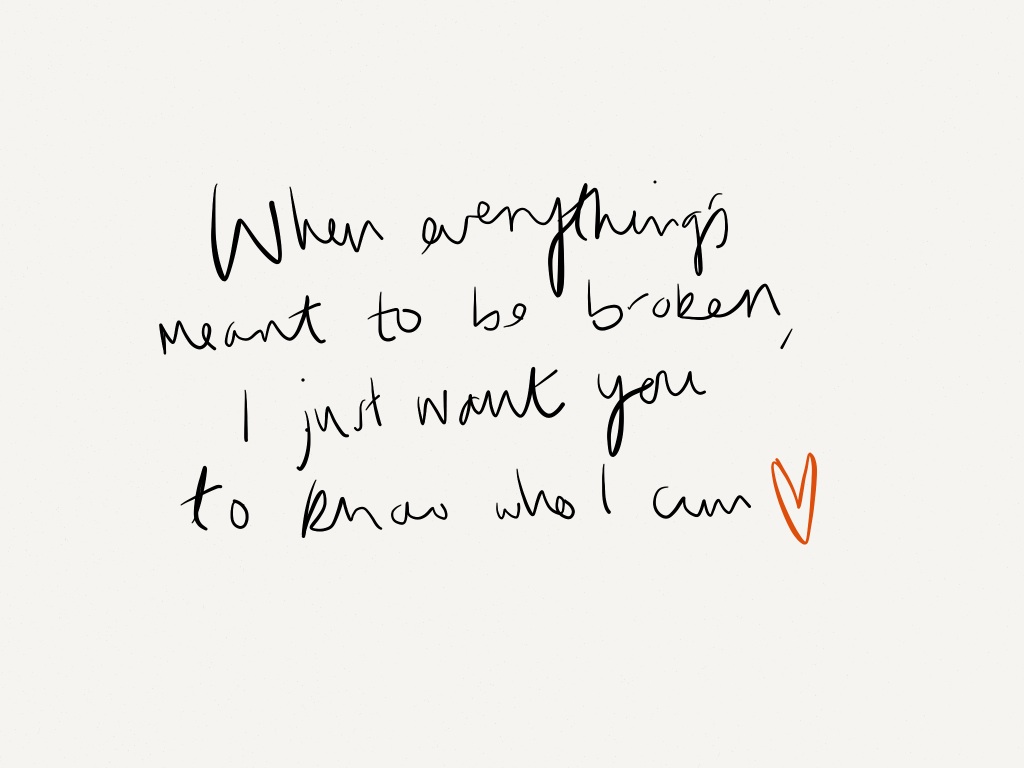 When everything's
meant to be broken,
I just want you
to know who I am